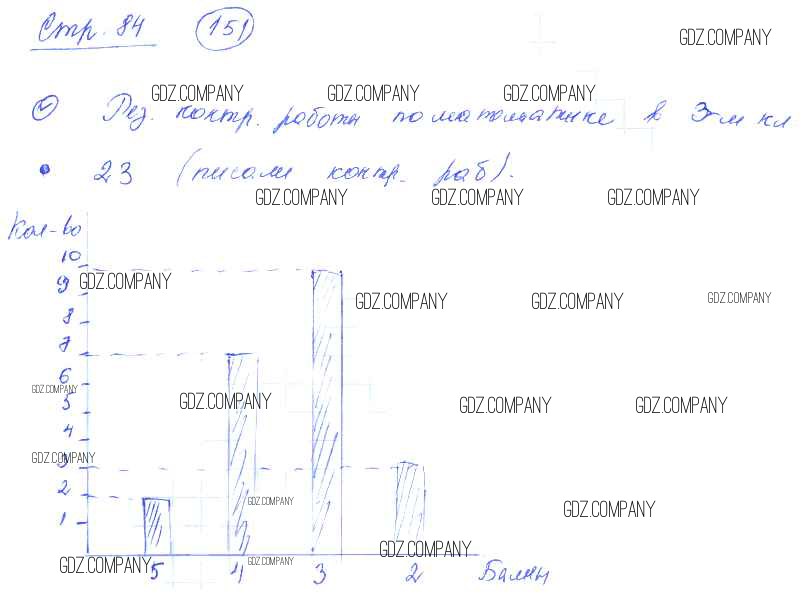 Стр. 84 (151)
GDZ.COMPANY
GDZ.COMPANY GDZ.COMPANY GDZ.COMPANY
Рез. контр. работы по математике в 3-м кл
• 23 (писали контр. раб).
GDZ.COMPANY GDZ.COMPANY GDZ.COMPANY
Кол-во
10
9 GDZ.COMPANY
GDZ.COMPANY GDZ.COMPANY GDZ.COMPANY
8
7
6
GDZ.COMPANY
5 GDZ.COMPANY GDZ.COMPANY GDZ.COMPANY
4
GDZ.COMPANY
3
2
GDZ.COMPANY GDZ.COMPANY
1
GDZ.COMPANY
GDZ.COMPANY GDZ.COMPANY
5 4 3 2 Баллы